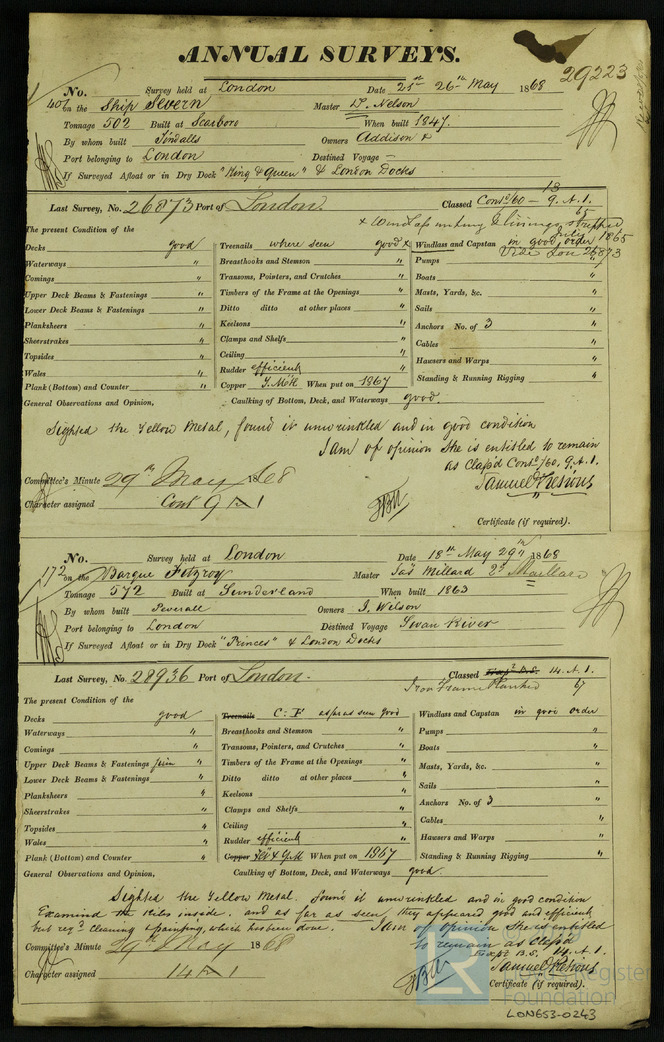 ANNUAL SURVEYS.
29223
No. Survey held at London Date 25th 26th May 1868
401 on the Ship Severn Master D. Nelson
Tonnage 502 Built at Scarboro When built 1847.
By whom built Tindalls Owners Addison &
Port belonging to London Destined Voyage –
If Surveyed Afloat or in Dry Dock "King & Queen" & London Docks
Last Survey, No. 26873 Port of London. Classed Contd/60 – 13 9. A.1.
65
x Windlass unhung & linings stripped
July 1865
Vide Lon 26873
The present Condition of the
Decks good Treenails where seen good x Windlass and Capstan in good order
Waterways " Breasthooks and Stemson " Pumps "
Comings " Transoms, Pointers, and Crutches " Boats "
Upper Deck Beams & Fastenings " Timbers of the Frame at the Openings " Masts, Yards, &c. "
Lower Deck Beams & Fastenings " Ditto ditto at other places " Sails "
Planksheers " Keelsons " Anchors No. of 3 "
Sheerstrakes " Clamps and Shelfs " Cables "
Topsides " Ceiling " Hawsers and Warps "
Wales " Rudder efficient Standing & Running Rigging "
Plank (Bottom) and Counter " Copper Y. Metl When put on 1867
General Observations and Opinion, Caulking of Bottom, Deck, and Waterways good.
Sighted the Yellow Metal, found it unwrinkled and in good condition
I am of opinion She is entitled to remain
as Class'd Contd/60. 9. A.1.
Samuel Pretious
Committee's Minute 29th May 1868
Character assigned Contd 9 A 1
Certificate (if required).
No. Survey held at London Date 18th May 29th 1868
172 on the Barque Fitzroy Master Jas Millard 2s Maillard
Tonnage 572 Built at Sunderland When built 1863
By whom built Peverall Owners J. Wilson
Port belonging to London Destined Voyage Swan River
If Surveyed Afloat or in Dry Dock "Princes" & London Docks
Last Survey, No. 28936 Port of London. Classed Exptl B.S. 14. A.1.
Iron Frame Planked 67
The present Condition of the
Decks good Treenails C. F as far as seen good Windlass and Capstan in good order
Waterways " Breasthooks and Stemson " Pumps "
Comings " Transoms, Pointers, and Crutches " Boats "
Upper Deck Beams & Fastenings " Timbers of the Frame at the Openings " Masts, Yards, &c. "
Lower Deck Beams & Fastenings " Ditto ditto at other places " Sails "
Planksheers " Keelsons " Anchors No. of 3 "
Sheerstrakes " Clamps and Shelfs " Cables "
Topsides " Ceiling " Hawsers and Warps "
Wales " Rudder efficient Standing & Running Rigging "
Plank (Bottom) and Counter " Copper & Y.M When put on 1867
General Observations and Opinion, Caulking of Bottom, Deck, and Waterways good.
Sighted the Yellow Metal. found it unwrinkled and in good condition
Examined the Ribs inside. and as far as seen they appeared good and efficient
but reqd cleaning & painting, which has been done. I am of opinion She is entitled
to remain as Class'd
Exptl B.S. 14. A.1.
Samuel Pretious
Committee's Minute 29th May 1868
Character assigned 14 A 1
Certificate (if required).
LR
Lloyd's Register
Foundation
LON653-0243